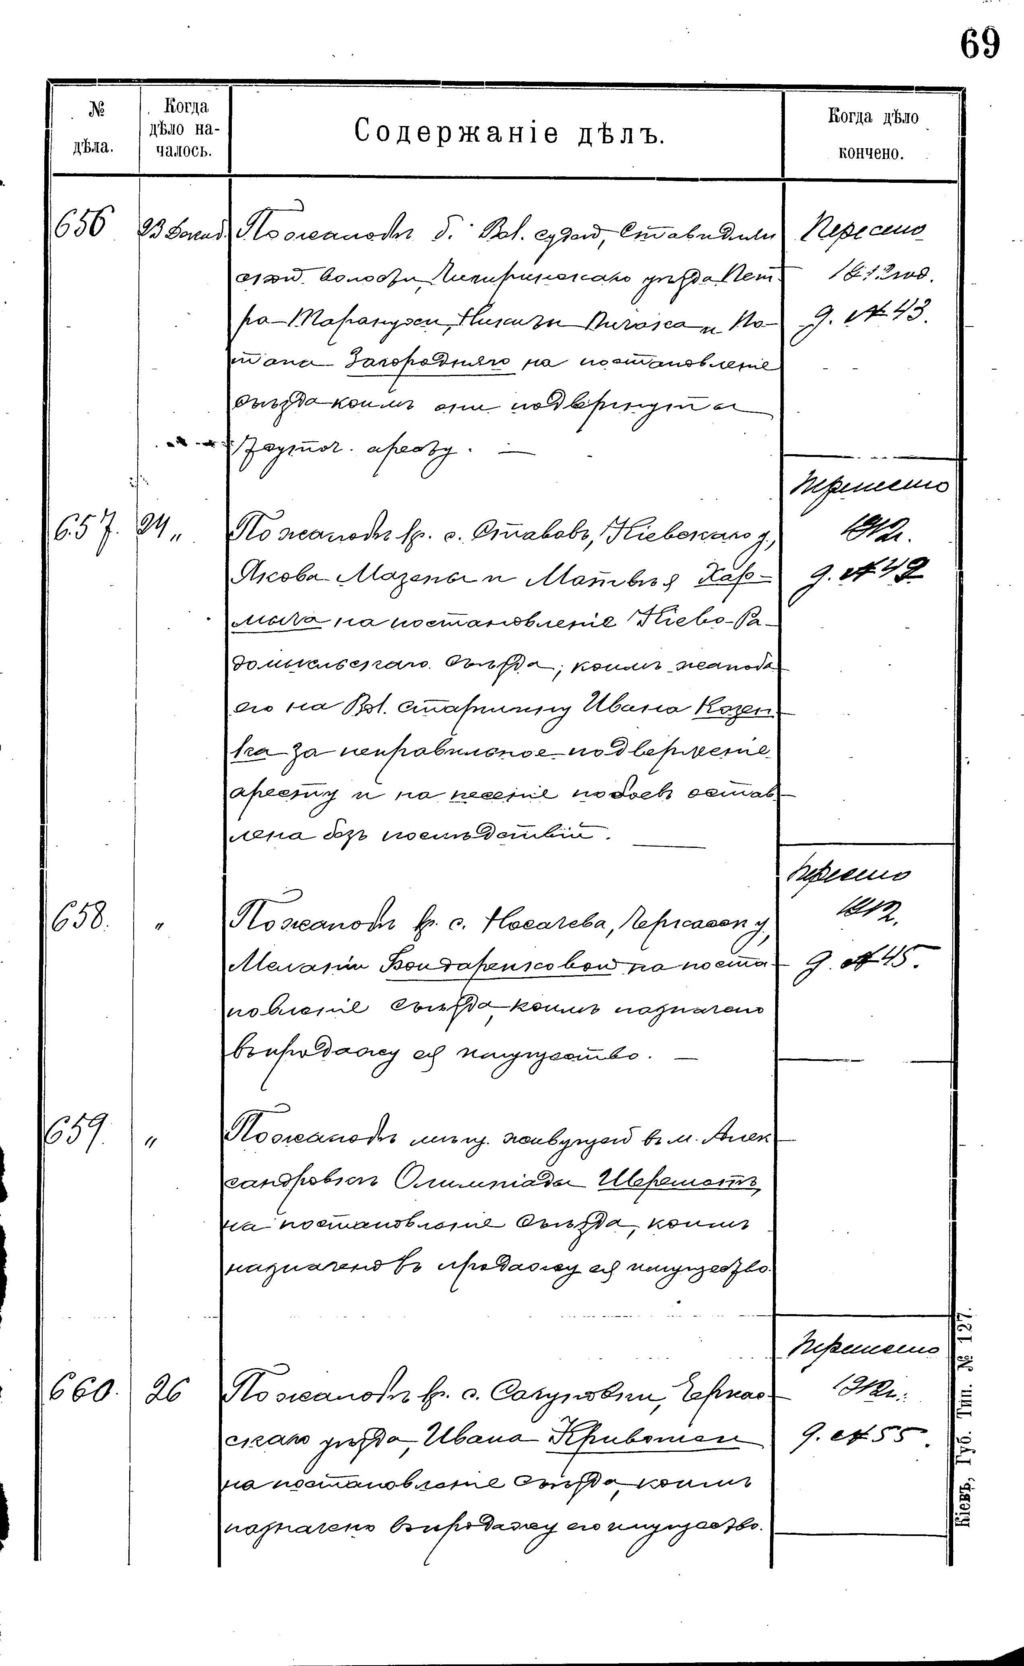 69
№ дѣла.
Когда дѣло началось.
Содержаніе дѣлъ.
Когда дѣло кончено.
656
23 Декаб.
По жалобѣ б. Вол. судей, Ставидлян
ской волости, Чигиринскаго уѣзда Пет-
ра Маранужи, Никиты и По-
тапа Загородняго на постановленіе
съѣзда коимъ они подвергнуты
7 суточ. аресту. —
Пересено
1912 год.
д. № 43.
657.
24 „
По жалобѣ кр. с. Ставовъ, Кіевскаго у,
Якова Мазепы и Матвѣя Хар-
мача на постановленіе Кіево-Ра-
домысльскаго Съѣзда, коимъ жалоба
его на Вол. старшину Ивана Козен-
ка за неправильное подверженіе
аресту и нанесеніе побоевъ остав-
лена безъ послѣдствій. —
Перенесено
1912г.
д. № 49
658.
„
По жалобѣ кр. с. Носачева, Черкасск у,
Меланіи Бондаренковой на поста-
новленіе Съѣзда, коимъ назначено
въ продажу ея имущество. —
Пересено
1912.
д. № 45.
659.
„
По жалобѣ мѣщ. живущей въ м. Алек
сандровкѣ Олимпіады Шереметъ,
на постановленіе Съѣзда, коимъ
назначено въ продажу ея имущество.
660.
26
По жалобѣ кр. с. Сагуновки, Черкас-
скаго уѣзда, Ивана Кривошеи
на постановленіе Съѣзда, коимъ
назначено въ продажу его имущество.
Перенесено
1912г.
д. № 55.
Кіевъ, Губ. Тип. № 127.